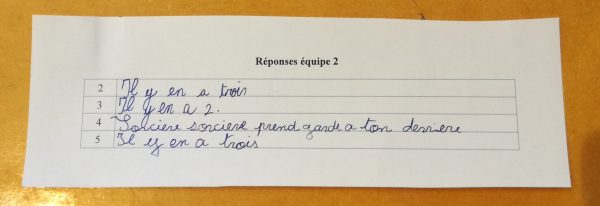 Réponses équipe 2
2 Il y en a trois
3 Il y en a 2.
4 Sorcière sorcière prend garde a ton derriere
5 Il y en a trois